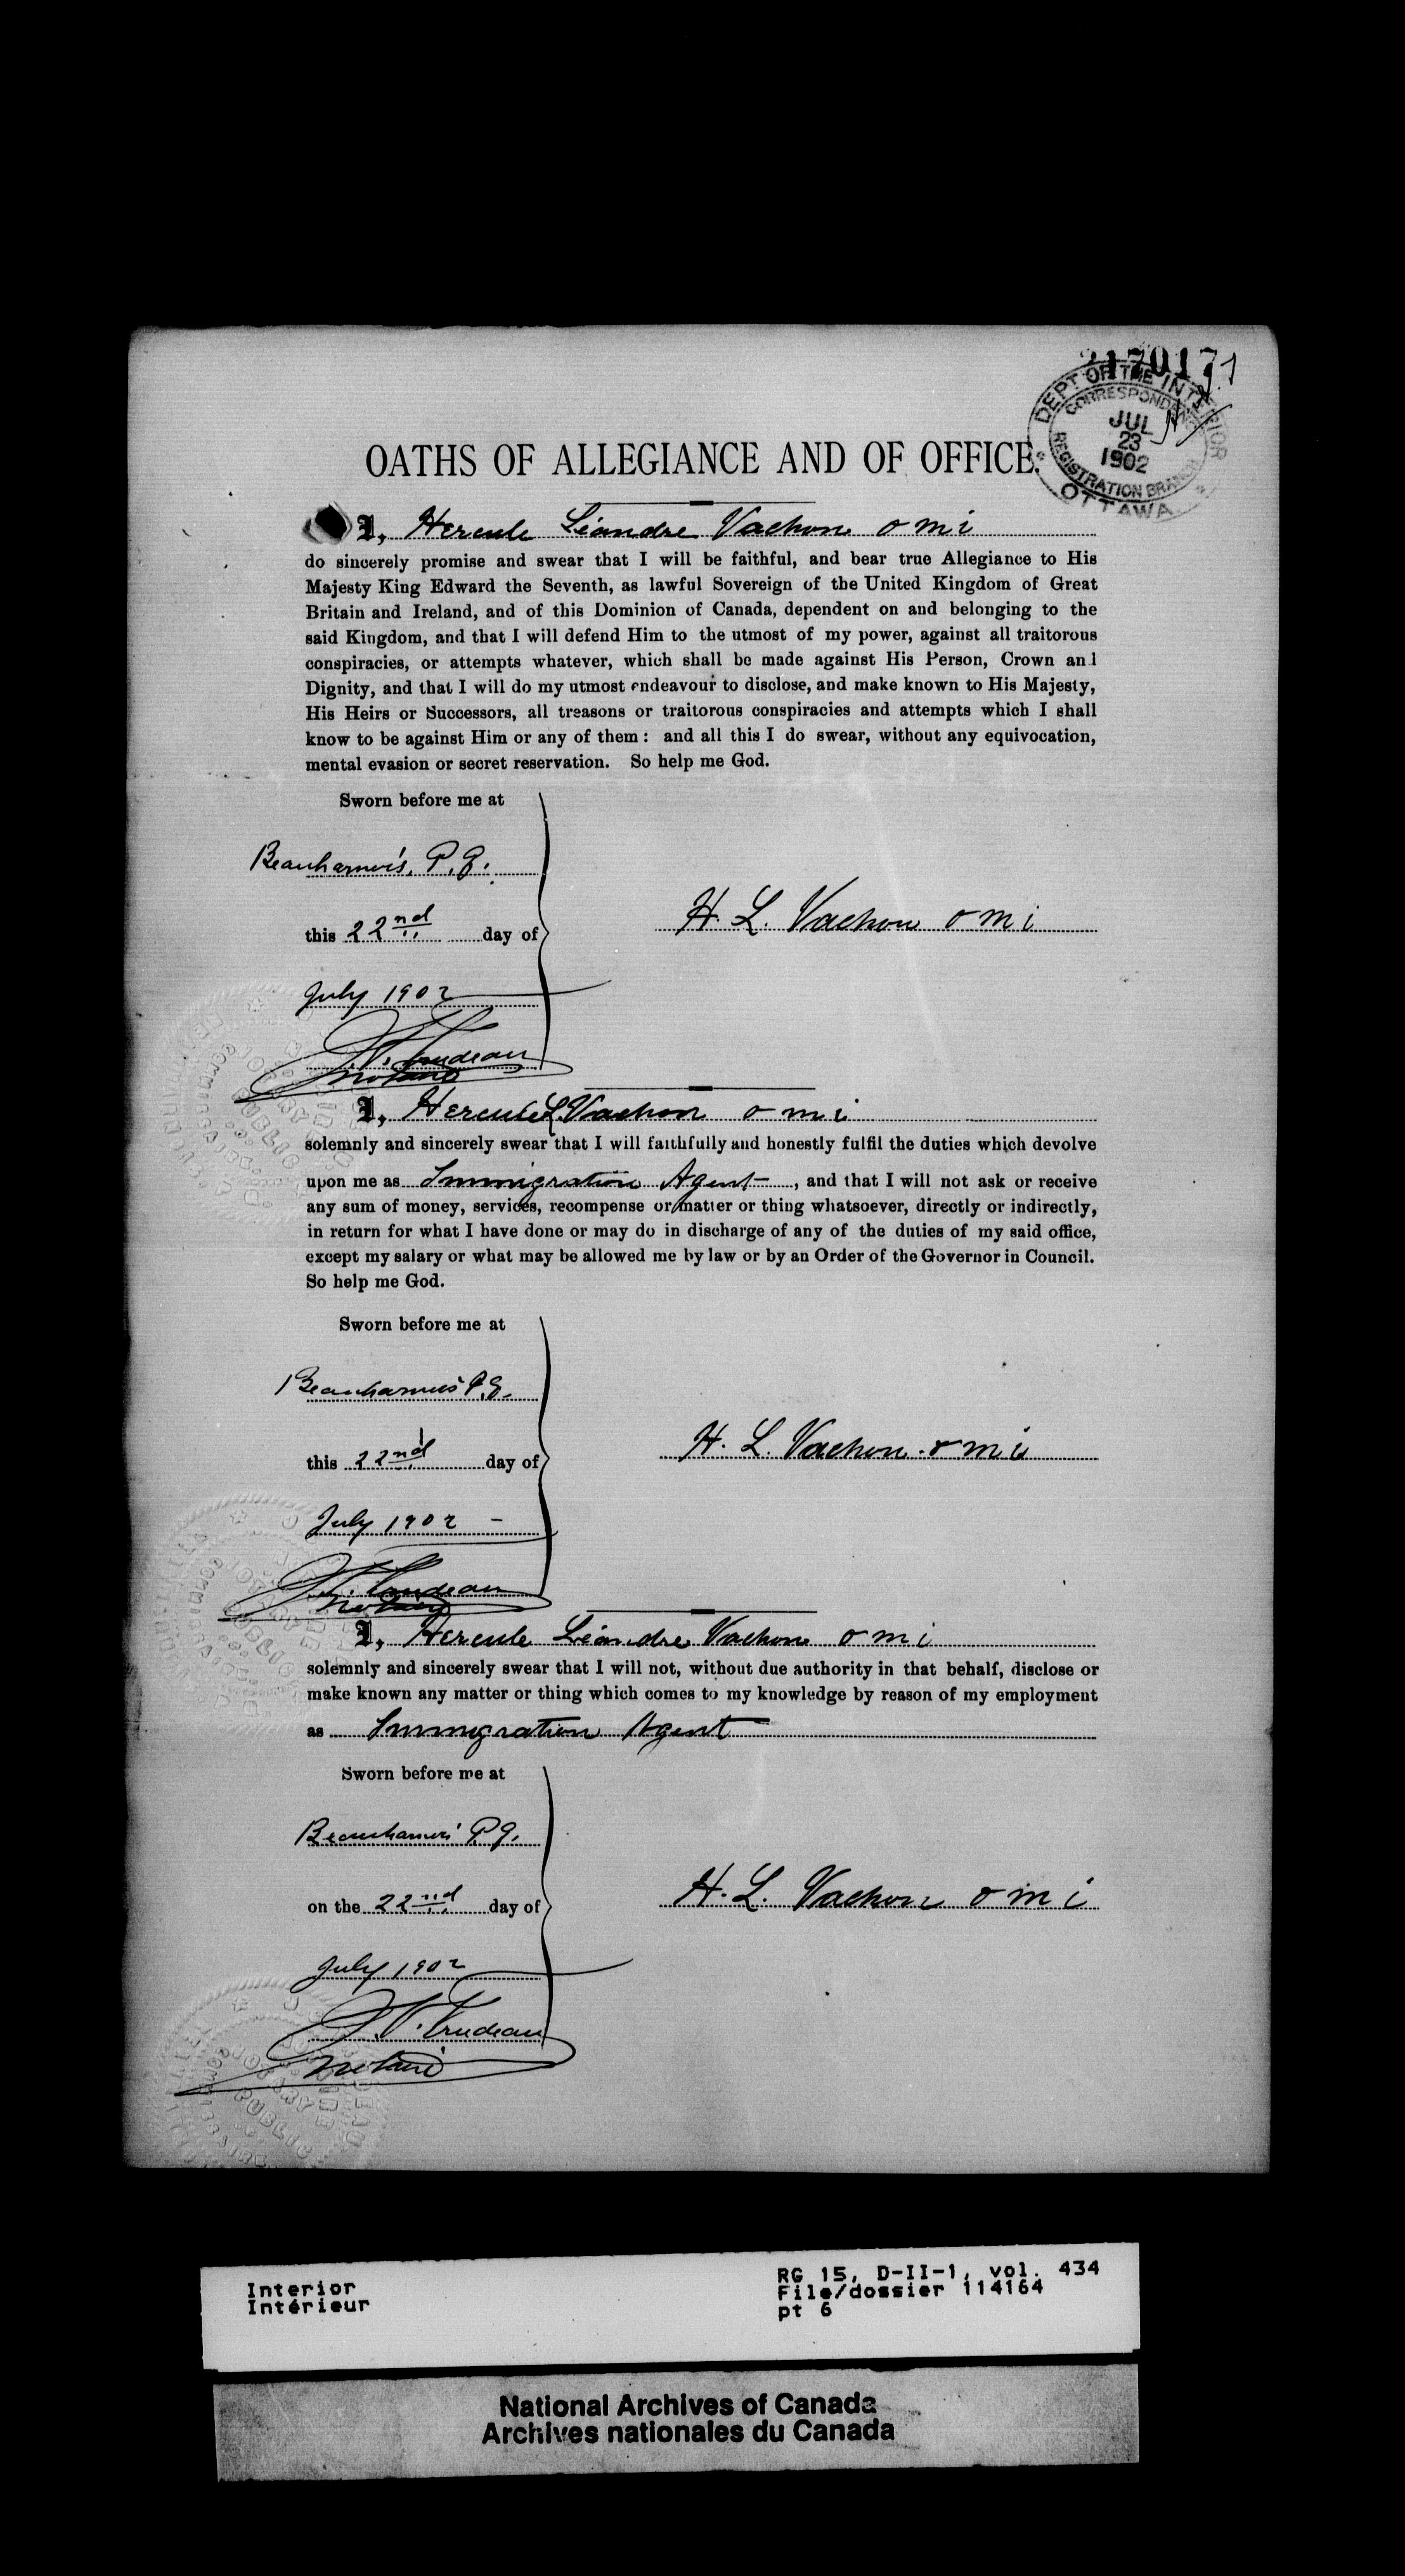 DEPT OF THE INTERIOR
CORRESPONDENCE
JUL
23
1902
REGISTRATION BRANCH
OTTAWA
OATHS OF ALLEGIANCE AND OF OFFICE.
I, Hercule Léandre Vachon o m i
do sincerely promise and swear that I will be faithful, and bear true Allegiance to His
Majesty King Edward the Seventh, as lawful Sovereign of the United Kingdom of Great
Britain and Ireland, and of this Dominion of Canada, dependent on and belonging to the
said Kingdom, and that I will defend Him to the utmost of my power, against all traitorous
conspiracies, or attempts whatever, which shall be made against His Person, Crown and
Dignity, and that I will do my utmost endeavour to disclose, and make known to His Majesty,
His Heirs or Successors, all treasons or traitorous conspiracies and attempts which I shall
know to be against Him or any of them : and all this I do swear, without any equivocation,
mental evasion or secret reservation. So help me God.
Sworn before me at
Beauharnois, P. Q.
this 22nd day of
H. L. Vachon o m i
July 1902
Trudeau
Notaire
I, Hercule L. Vachon o m i
solemnly and sincerely swear that I will faithfully and honestly fulfil the duties which devolve
upon me as Immigration Agent, and that I will not ask or receive
any sum of money, services, recompense or matter or thing whatsoever, directly or indirectly,
in return for what I have done or may do in discharge of any of the duties of my said office,
except my salary or what may be allowed me by law or by an Order of the Governor in Council.
So help me God.
Sworn before me at
Beauharnois P.Q.
this 22nd day of
H. L. Vachon o m i
July 1902 -
Trudeau
Notaire
I, Hercule Léandre Vachon o m i
solemnly and sincerely swear that I will not, without due authority in that behalf, disclose or
make known any matter or thing which comes to my knowledge by reason of my employment
as Immigration Agent
Sworn before me at
Beauharnois P.Q.
on the 22nd day of
H. L. Vachon o m i
July 1902
Trudeau
Notaire
Interior
Intérieur
RG 15, D-II-1, vol. 434
File/dossier 114164
pt 6
National Archives of Canada
Archives nationales du Canada